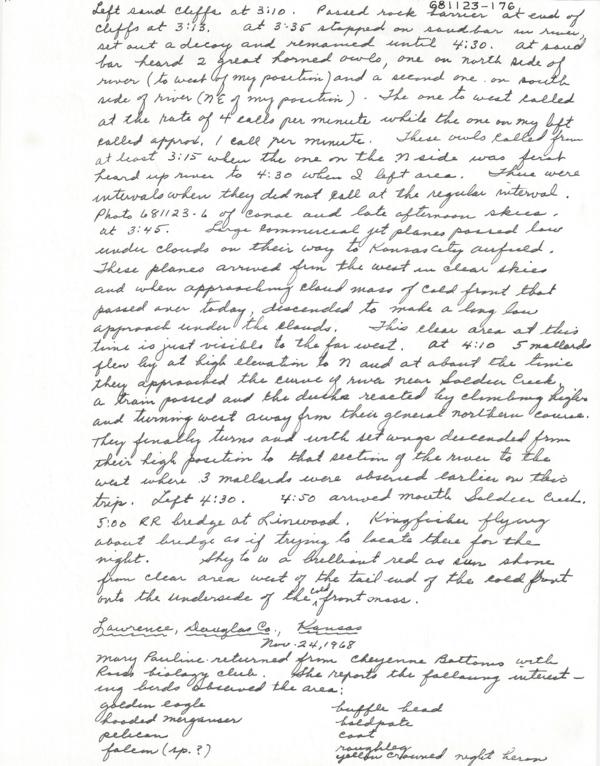 681123-176
Left sand cliffs at 3:10. Passed rock barrier at end of
cliffs at 3:13. At 3:35 stopped on sandbar in river,
set out a decoy and remained until 4:30. At sand
bar heard 2 great horned owls, one on north side of
river (to west of my position) and a second one on south
side of river (NE of my position). The one to west called
at the rate of 4 calls per minute while the one on my left
called approx. 1 call per minute. These owls called from
at least 3:15 when the one on the N side was first
heard up river to 4:30 when I left area. There were
intervals when they did not call at the regular interval.
Photo 681123-6 of canoe and late afternoon skies.
at 3:45. Large commercial jet planes passed low
under clouds on their way to Kansas City airfield.
These planes arrived frm the west in clear skies
and when approaching cloud mass of cold front that
passed over today, descended to make a long low
approach under the clouds. This clear area at this
time is just visible to the far west. At 4:10 5 mallards
flew by at high elevation to N and at about the time
they approached the curve of river near Soldier Creek,
a train passed and the ducks reacted by climbing higher
and turning west away from their general northern course.
They finally turns and with set wings descended from
their high position to that section of the river to the
west where 3 mallards were observed earlier on this
trip. Left 4:30. 4:50 arrived mouth Soldier Creek.
5:00 RR bridge at Linwood. Kingfisher flying
about bridge as if trying to locate there for the
night. Sky to W a brilliant red as sun shone
from clear area west of the tail end of the cold front
onto the underside of the cold front mass.
Lawrence, Douglas Co., Kansas
Nov. 24, 1968
Mary Pauline returned from Cheyenne Bottoms with
Ross biology club. She reports the following interest-
ing birds observed the area:
golden eagle buffle head
hooded merganser baldpate
pelican coot
falcon (sp.?) roughleg
yellow crowned night heron